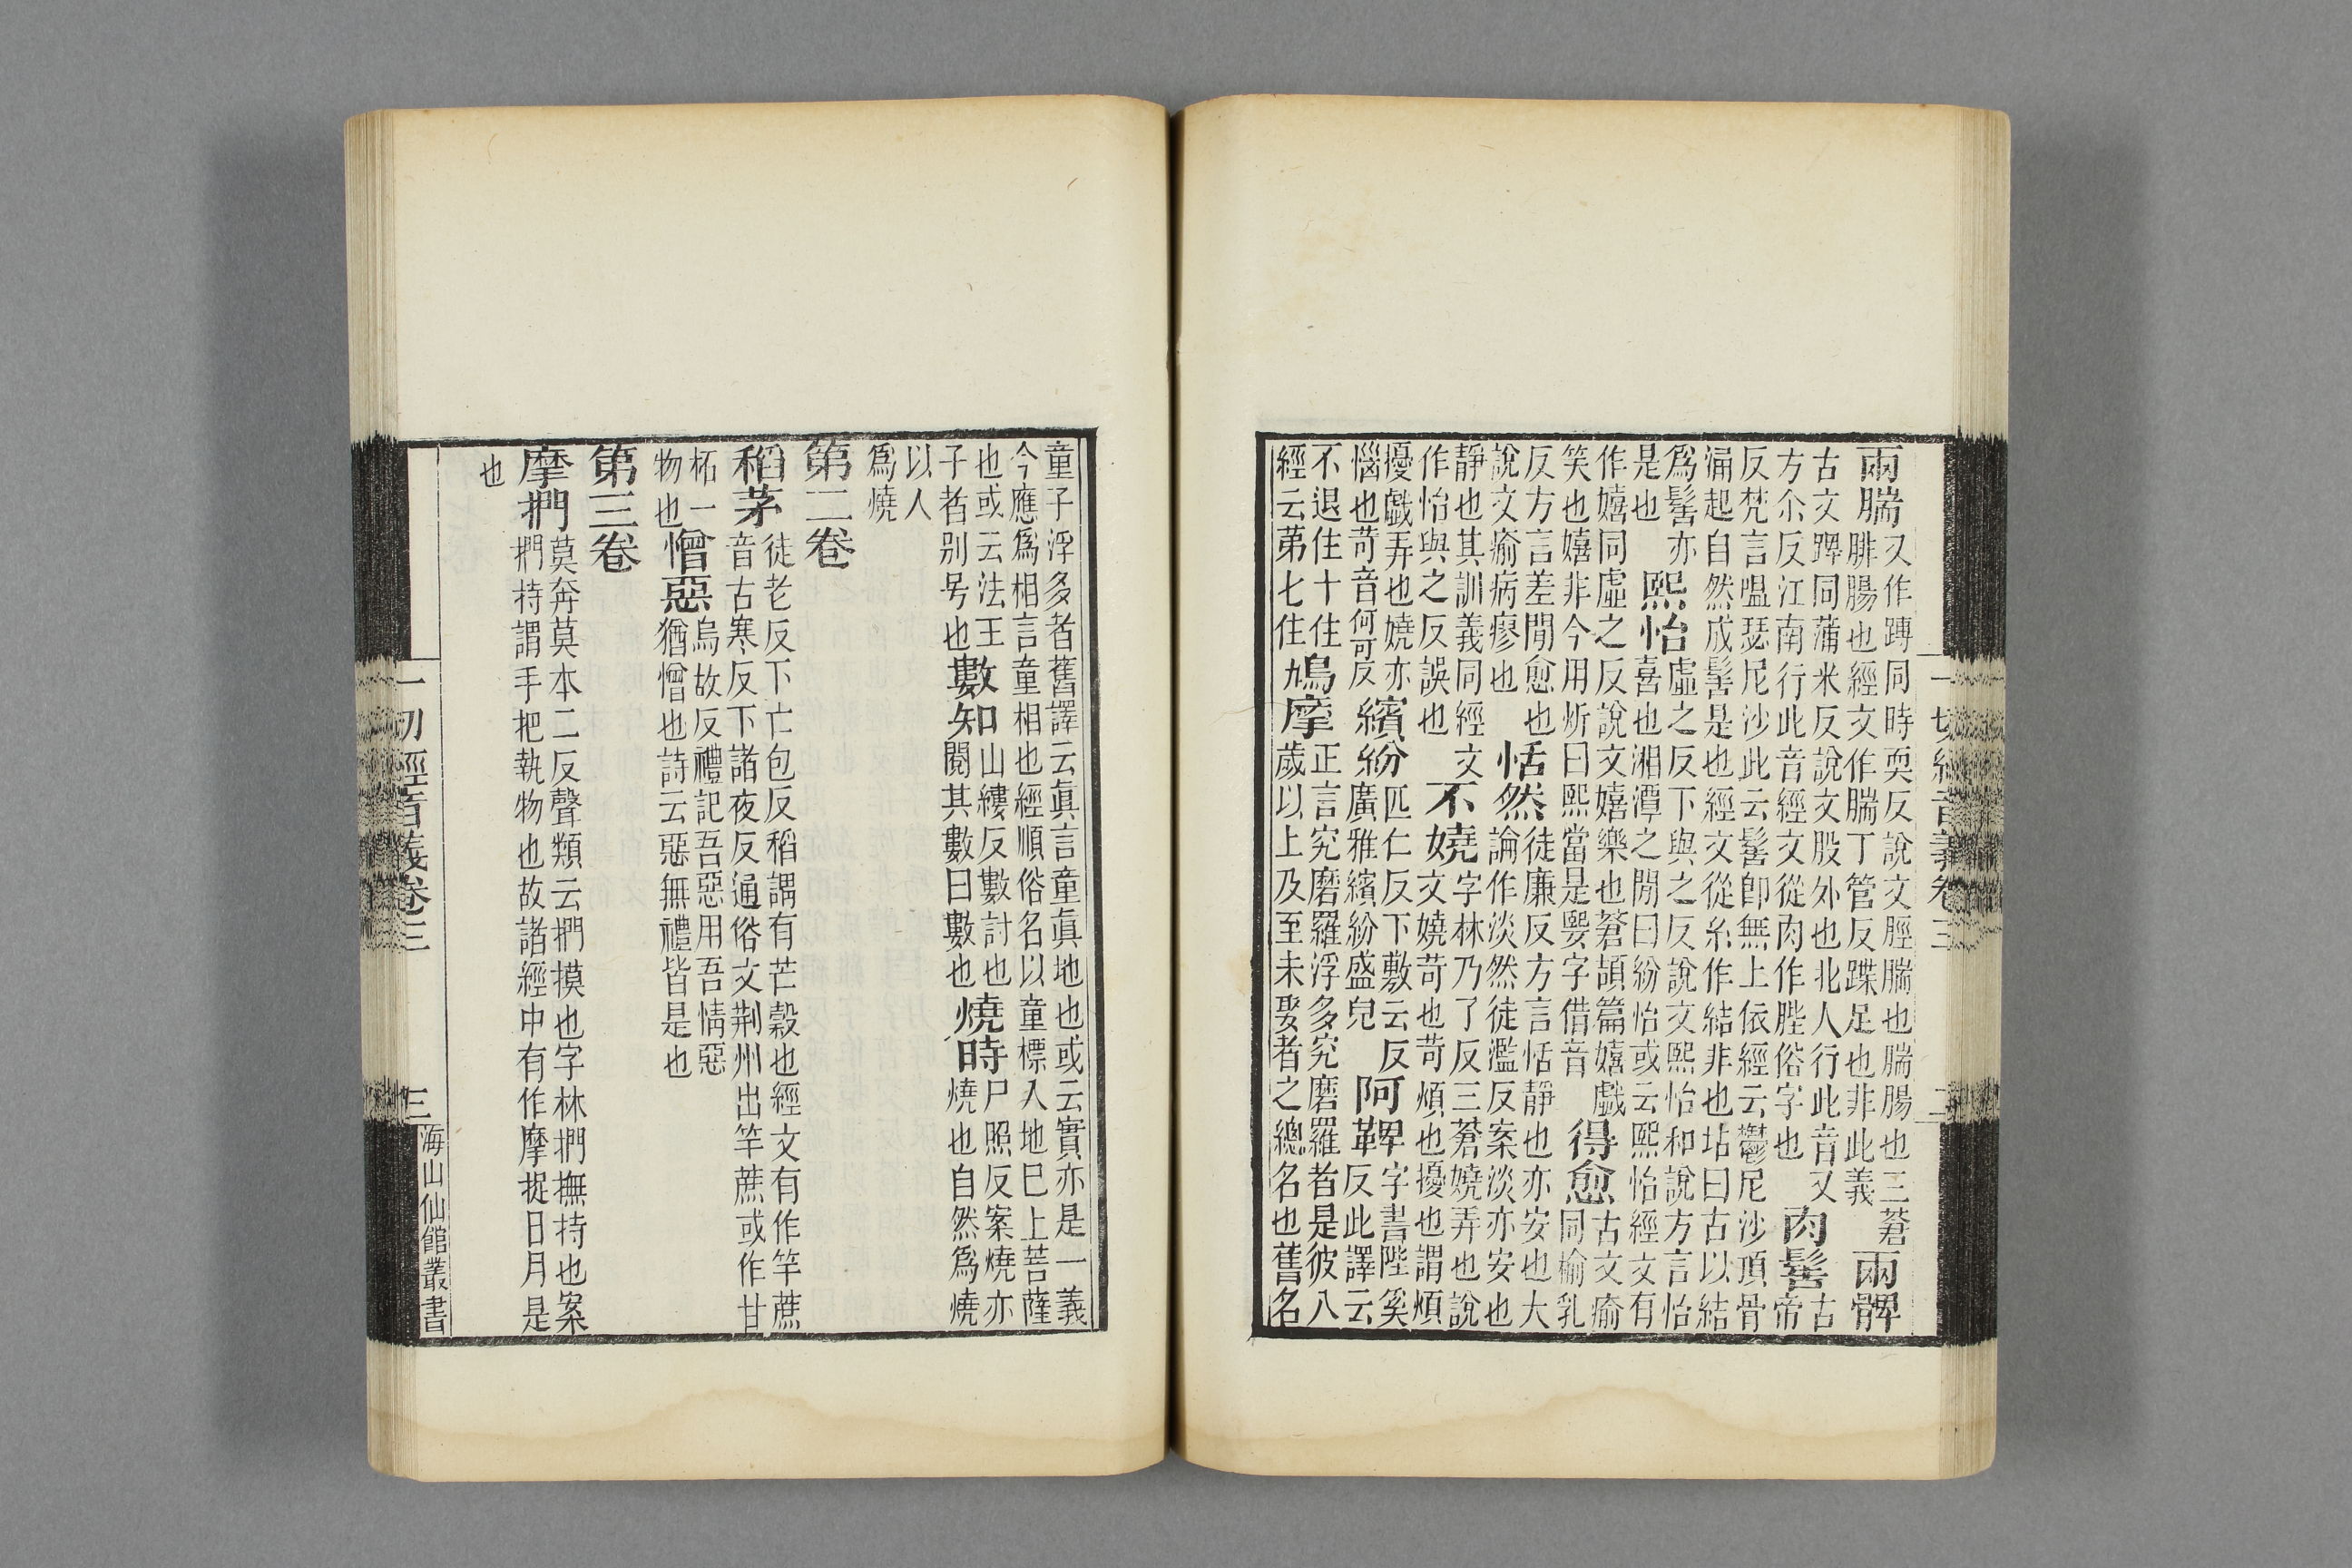 兩腨 又作蹲同時耎反說文脛腨也腨腸也三蒼
腓腸也經文作腨丁管反蹀足也非此義 兩髀
古文䠋同蒲米反說文股外也北人行此音又
方尒反江南行此音經文從肉作䏶俗字也 肉髻 古
帝
反梵言嗢瑟尼沙此云髻卽無上依經云鬱尼沙頂骨
漏起自然成髻是也經文從糸作結非也坫曰古以結
爲髻亦
是也 熙怡 虛之反下與之反說文熙怡和說方言怡
喜也湘潭之閒曰紛怡或云熙怡經文有
作嬉同虛之反說文嬉樂也蒼頡篇嬉戲
笑也嬉非今用炘曰熙當是媐字借音 得愈 古文瘉
同榆乳
反方言差閒愈也
說文瘉病瘳也 恬然 徒廉反方言恬靜也亦安也大
論作淡然徒濫反案淡亦安也
靜也其訓義同經文
作怡與之反誤也 不嬈 字林乃了反三蒼嬈弄也說
文嬈苛也苛煩也擾也謂煩
擾戲弄也嬈亦
惱也苛音何可反 繽紛 匹仁反下敷云反
廣雅繽紛盛皃 阿鞞 字書陛奚
反此譯云
不退住十住
經云第七住 鳩摩 正言究磨羅浮多究磨羅者是彼八
歲以上及至未娶者之總名也舊名
一切經音義卷三
二
童子浮多者舊譯云眞言童眞地也或云實亦是一義
今應爲相言童相也經順俗名以童標人地巳上菩薩
也或云法王
子者別号也 數知 山縷反數討也
閱其數曰數也 燒時 尸照反案燒亦
燒也自然爲燒
以人
爲燒
第二卷
稻茅 徒老反下亡包反稻謂有芒穀也經文有作竿蔗
音古寒反下諸夜反通俗文荆州出竿蔗或作甘
柘一
物也 憎惡 烏故反禮記吾惡用吾情惡
猶憎也詩云惡無禮皆是也
第三卷
摩捫 莫奔莫本二反聲類云捫摸也字林捫撫持也案
捫持謂手把執物也故諸經中有作摩捉日月是
也
一切經音義卷三
三
海山仙館叢書